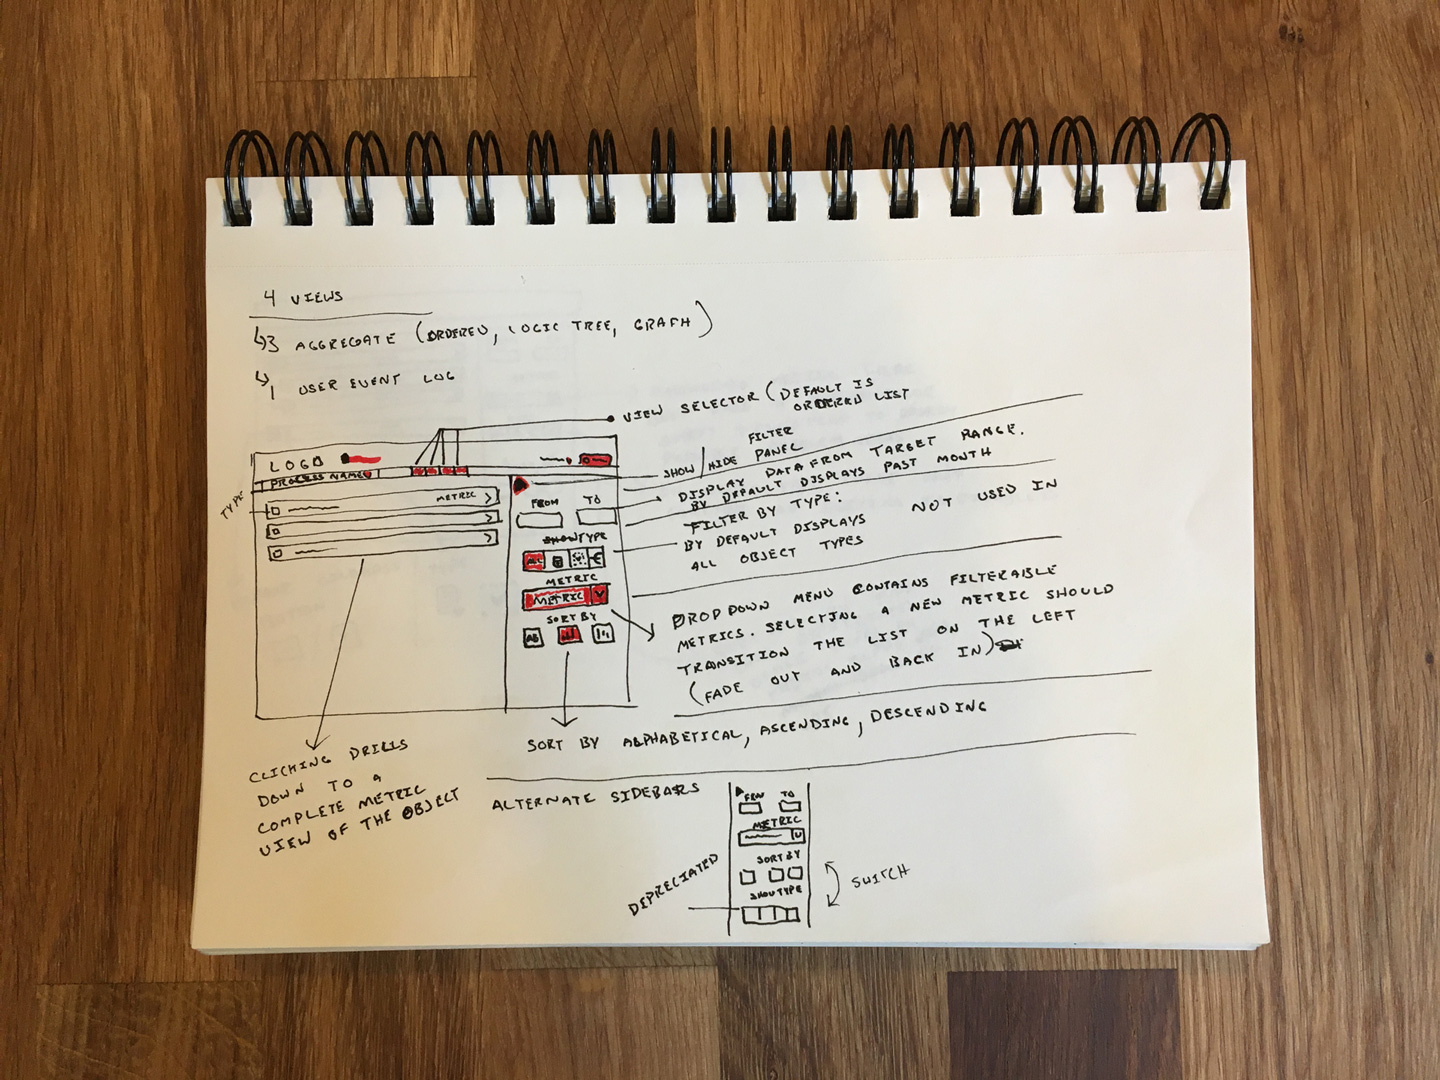 4 VIEWS
↳3 AGGREGATE (ORDERED, LOGIC TREE, GRAPH)
↳1 USER EVENT LOG
VIEW SELECTOR (DEFAULT IS
ORDERED LIST
LOGO
PROCESS NAME
TYPE
METRIC
FROM TO
SHOWTYPE
METRIC
METRIC
SORT BY
FILTER
SHOW/HIDE PANEL
DISPLAY DATA FROM TARGET RANGE.
BY DEFAULT DISPLAYS PAST MONTH
FILTER BY TYPE:
BY DEFAULT DISPLAYS NOT USED IN
ALL OBJECT TYPES
DROPDOWN MENU CONTAINS FILTERABLE
METRICS. SELECTING A NEW METRIC SHOULD
TRANSITION THE LIST ON THE LEFT
(FADE OUT AND BACK IN)
SORT BY ALPHABETICAL, ASCENDING, DESCENDING
CLICKING DRILLS
DOWN TO A
COMPLETE METRIC
VIEW OF THE OBJECT
ALTERNATE SIDEBARS
TO
METRIC
SORT BY
SHOWTYPE
DEPRECIATED
SWITCH